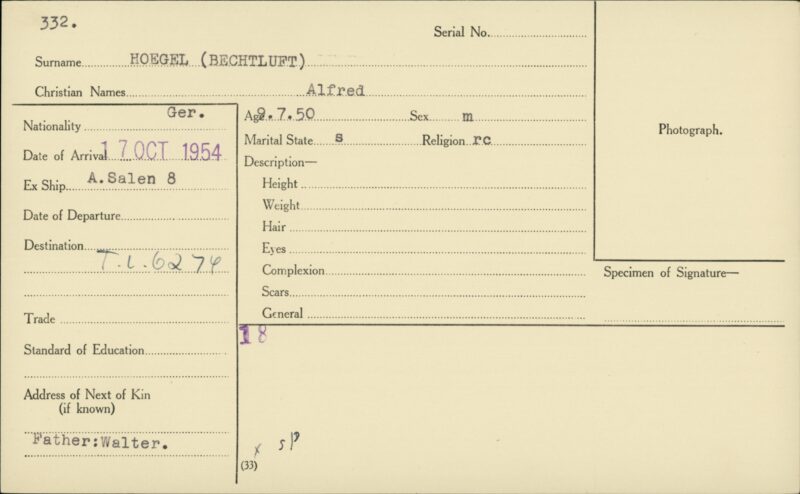 332.
Serial No.
Surname HOEGEL (BECHTLUFT)
Christian Names Alfred
Nationality Ger.
Date of Arrival 17 OCT 1954
Ex Ship A.Salen 8
Date of Departure
Destination
T.L. 6274
Trade
Standard of Education
Address of Next of Kin
(if known)
Father:Walter.
Age 9.7.50 Sex m
Marital State s Religion rc
Description—
Height
Weight
Hair
Eyes
Complexion
Scars
General
18
x
(33)
Photograph.
Specimen of Signature—